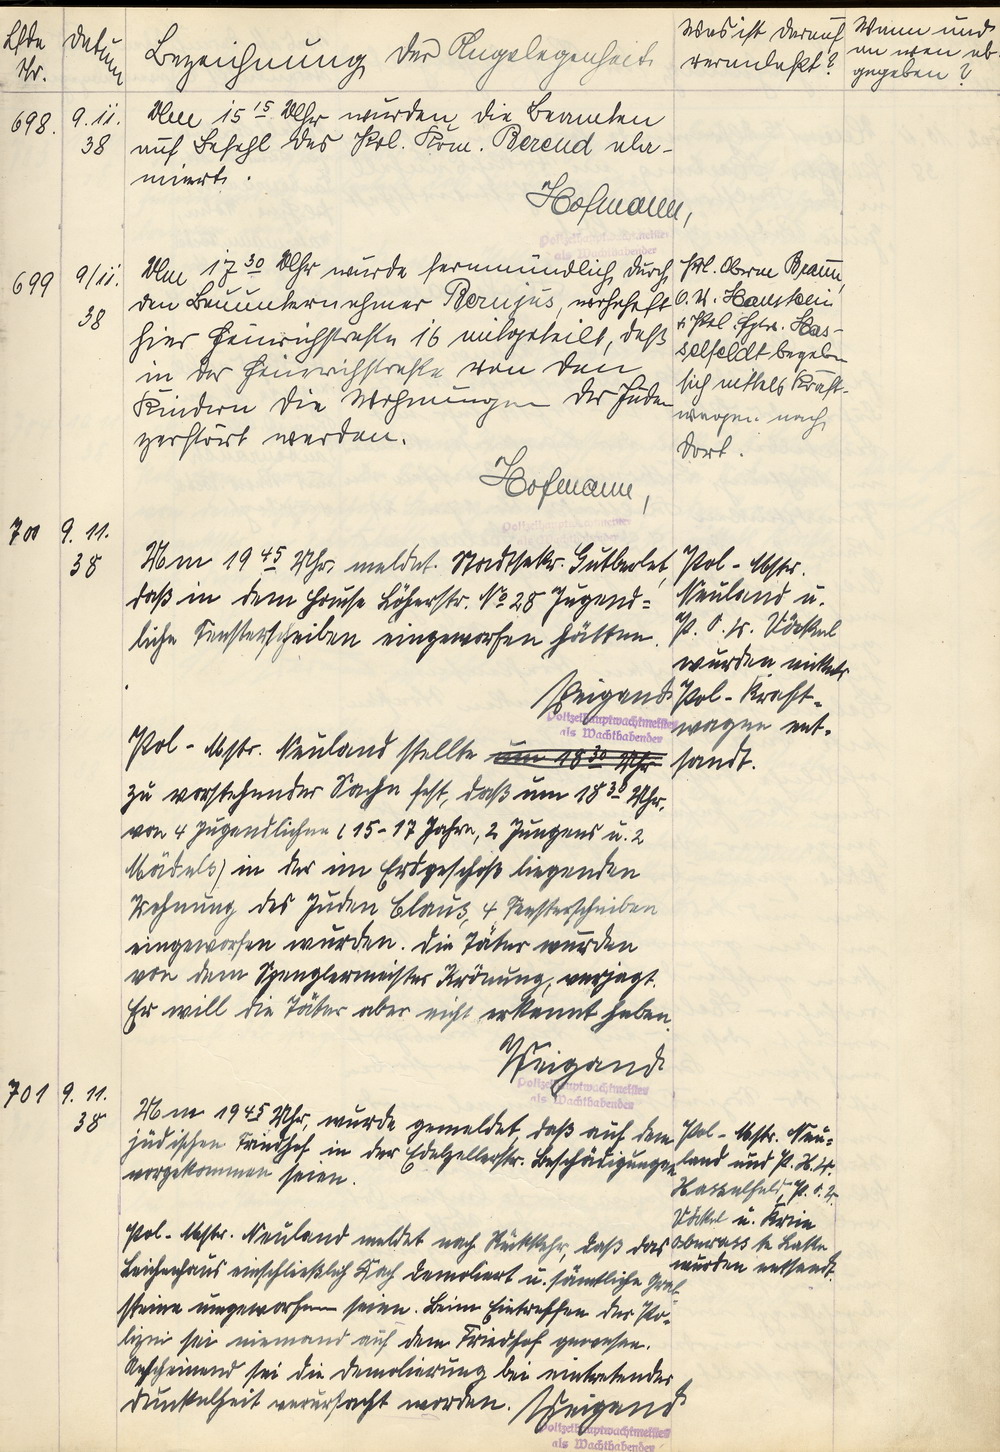 Lfde Nr.
Datum
Bezeichnung der Angelegenheit.
Was ist darauf
veranlaßt?
Wann und
an wen ab-
gegeben?
698.
9.11.
38
Um 15 15 Uhr wurden die Beamten
auf Befehl des Pol. Kom. Berend alar-
miert.
Hofmann,
Polizeihauptwachtmeister
als Wachthabender
699
9/11.
38
Um 17 30 Uhr wurde fernmündlich durch
den Bauunternehmer wohnhaft
hier Heinrichstraße 16 mitgeteilt, daß
in der Heinrichstraße von den
Kindern die Wohnungen der Juden
zerstört werden.
Hofmann,
Pol. Oberm. Braun,
O. W. Haustein
u. Pol. Hptw. Has-
selfeldt begeben
sich mittels Kraft-
wagen nach
dort.
Polizeihauptwachtmeister
700
9. 11.
38
Um 19 45 Uhr, meldet Stadtsekr. Gutberlet,
daß in dem Hause Löherstr. No 28 Jugend=
liche Fensterscheiben eingeworfen hätten.
Weigand
Polizeihauptwachtmeister
als Wachthabender
Pol - Mstr.
Neuland u.
P. O. W. Däckel
wurden mittels
Pol - Kraft-
wagen ent-
sandt.
Pol - Mstr. Neuland stellte um 18 30 Uhr
zu vorstehender Sache fest, daß um 18 30 Uhr,
von 4 Jugendlichen (15-17 Jahre, 2 Jungens u. 2
Mädels) in der im Erdgeschoß liegenden
Wohnung des Juden Claus, 4 Fensterscheiben
eingeworfen wurden. Die Täter wurden
von dem Spenglermeister Krönung, verjagt.
Er will die Täter aber nicht erkannt haben.
Weigand
Polizeihauptwachtmeister
als Wachthabender
701
9. 11.
38
Um 19 45 Uhr, wurde gemeldet, daß auf dem
jüdischen Friedhof in der Edelzellerstr. Beschädigungen
vorgekommen seien.
Pol - Mstr. Neu=
land und P. H. W.
Hasselfeld, P. O. W.
Däckel u. Krim
wurden entsandt.
Pol - Mstr. Neuland meldet nach Rückkehr, daß das
Leichenhaus einschließlich Dach demoliert u. sämtliche Grab
steine umgeworfen seien. Beim Eintreffen der Po-
lizei sei niemand auf dem Friedhof gewesen.
Anscheinend sei die Demolierung bei eintretender
Dunkelheit verursacht worden. Weigand
Polizeihauptwachtmeister
als Wachthabender